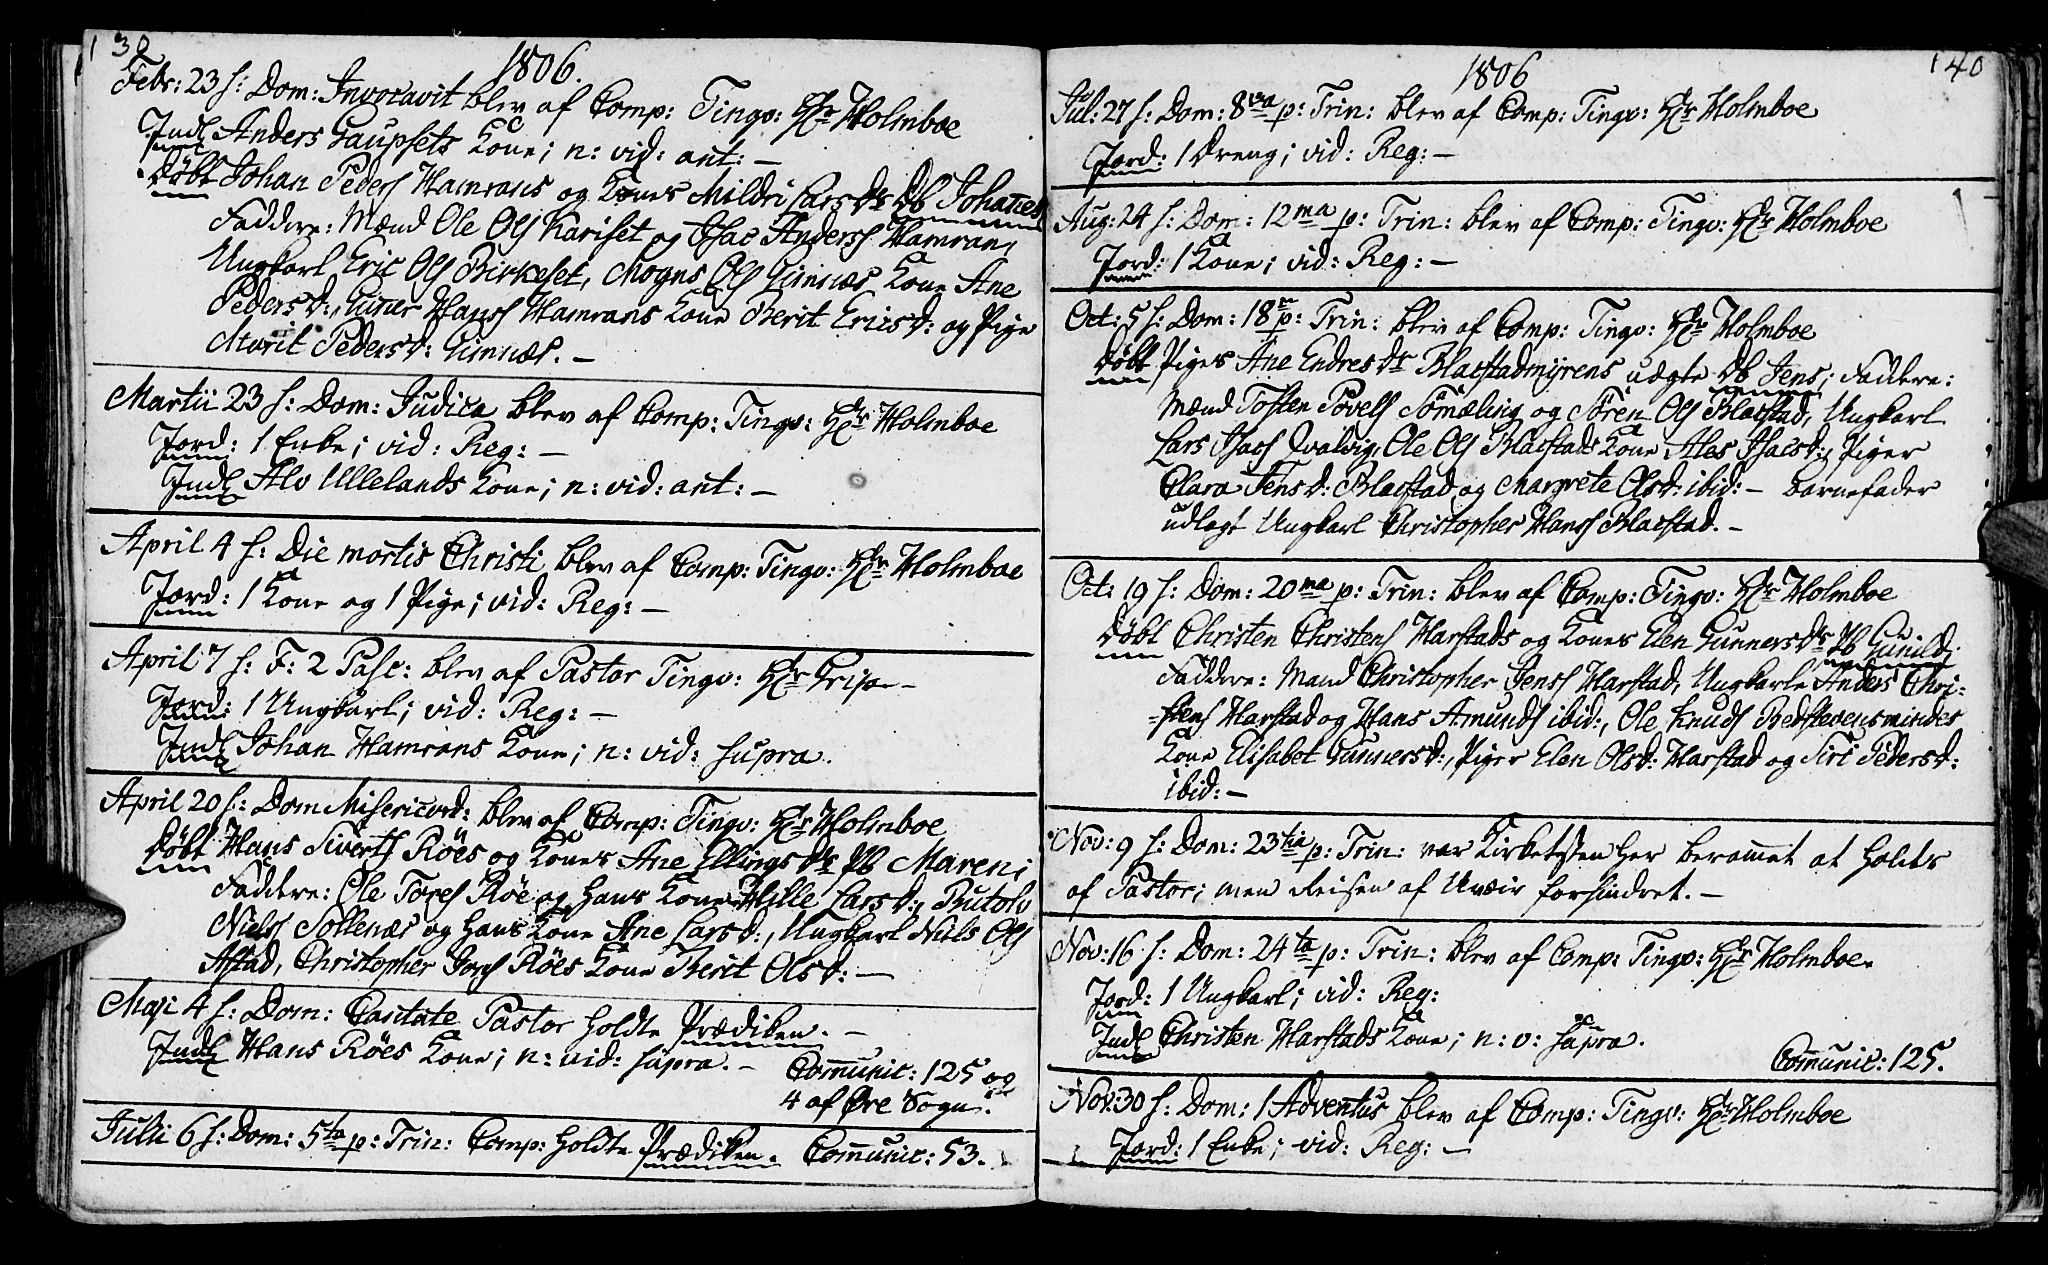 139
1806.
Febr: 23 s: Dom: Invocavit blev af Comp: Tingv: Hr Holmboe
Indl Anders Gaupsets Kone; n: vid: ant: —
Döbt Johan Peders Hamrans og Kones Mildri Lars Dr Db Johanes
Faddere: Mænd Ole Ols Kariset og Isac Anders Hamran,
Ungkarl Eric Ols Birkeset, Mogns Ols Gimnæs Kone Ane
Peders d:, Giner Hans Hamrans Kone Berit Erics d: og Pige
Marit Peders d: Gimnæs. —
Martii 23 s: Dom: Judica blev af Comp: Tingv: Hr Holmboe
Jord: 1 Enke; vid: Reg: —
Indl Alv Ullelands Kone; n: vid: ant: —
April 4 s: Die mortis Christi blev af Comp: Tingv: Hr Holmboe
Jord: 1 Kone og 1 Pige; vid: Reg: —
April 7 s: F: 2 Pasc: blev af Pastor Tingv: Hr
Jord: 1 Ungkarl; vid: Reg: —
Indl Johan Hamrans Kone; n: vid: supra.
April 20 s: Dom Misericord: blev af Comp: Tingv: Hr Holmboe
Döbt Hans Siverts Röes og Kones Ane Ellings Dr Pb Mareni
Faddere: Ole Tores Röe og hans Kone Hille Lars d:, Butolv
Niels Sollenæs og hans Kone Ane Lars d:, Ungkarl Niels Ols
Astad, Christopher Röes Kone Berit Ols d: —
Maji 4 s: Dom: Cantate Pastor holdte Prædiken. —
Indl Hans Röes Kone; n: vid: supra. —
Comunic: 125 og
4 af Øre Sogn.
Julii 6 s: Dom: 5ta p: Trin: Comp: holdte Prædiken. Comunic: 53.
140
1806
Jul: 27 s: Dom: 8va p: Trin: blev af Comp: Tingv: Hr Holmboe
Jord: 1 Dreng; vid: Reg: —
Aug: 24 s: Dom: 12ma p: Trin: blev af Comp: Tingv: Hr Holmboe
Jord: 1 Kone; vid: Reg: —
Oct: 5 s: Dom: 18 p: Trin: blev af Comp: Tingv: Hr Holmboe
Döbt Piges Ane Endres Dr Blacstadmyrens uægte Db Jens; Faddere:
Mænd Tosten Povels Sömæling og Sören Ols Blacstad, Ungkarl
Lars Isacs Qvalvig, Ole Ols Blacstads Kone Ales Isacs d:, Piger
Clara Jens d: Blacstad og Margrete Ols d: ibid: — Barnefader
udlagt Ungkarl Christopher Hans Blacstad. —
Oct: 19 s: Dom: 20ma p: Trin: blev af Comp: Tingv: Hr Holmboe
Döbt Christen Christens Harstads og Kones Elen Gunners Dr Pb Gunild;
Faddere: Mand Christopher Jens Harstad, Ungkarle Anders Chri-
stens Harstad og Hans Amunds ibid:, Ole Knuds Bedstevensmindes
Kone Elisabet Gunners d:, Piger Elen Ols d: Harstad og Siri Peders d:
ibid: —
Nov: 9 s: Dom: 23tia p: Trin: var Kirketjsten her beramet at holdes
af Pastor; men Reisen af Uveir forhindret. —
Nov: 16 s: Dom: 24ta p: Trin: blev af Comp: Tingv: Hr Holmboe.
Jord: 1 Ungkarl; vid: Reg:
Indl Christen Harstads Kone; n: v: supra.
Comunic: 125.
Nov: 30 s: Dom: 1 Adventus blev af Comp: Tingv: Hr Holmboe
Jord: 1 Enke; vid: Reg: —